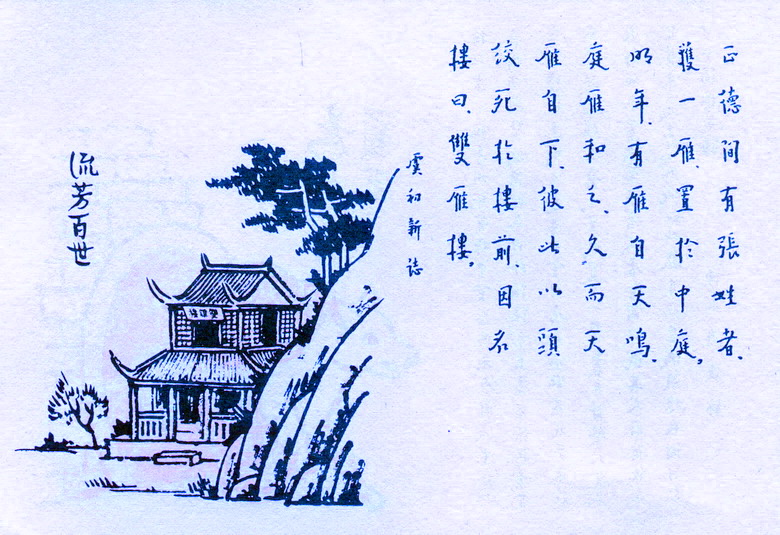 正德間有張姓者、
獲一雁、置於中庭。
明年、有雁自天鳴、
庭雁和之、久而天
雁自下、彼此以頭
絞死於樓前、因名
樓曰、雙雁樓。
虞初新誌
流芳百世